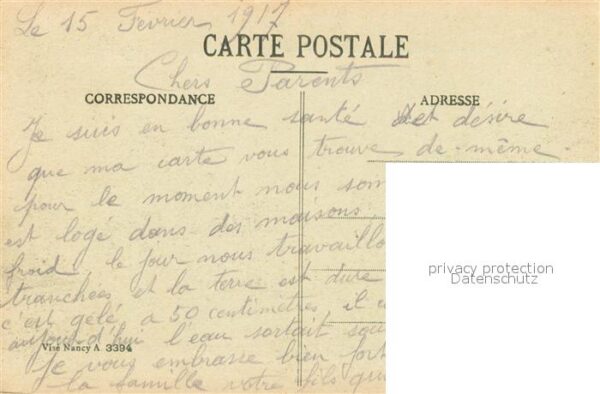 Le 15 Fevrier 1917
CARTE POSTALE
Chers Parents
CORRESPONDANCE
ADRESSE
Je suis en bonne santé et désire
que ma carte vous trouve de-même.
pour le moment nous som
est logé dans des maisons,
froid, le jour nous travaillo
tranchées et la terre est dure
c'est gélé a 50 centimètres, il
aujourd'hui l'eau sortait sou
Visé Nancy A 3394
Je vous embrasse bien fort
la famille votre fils qui
privacy protection
Datenschutz